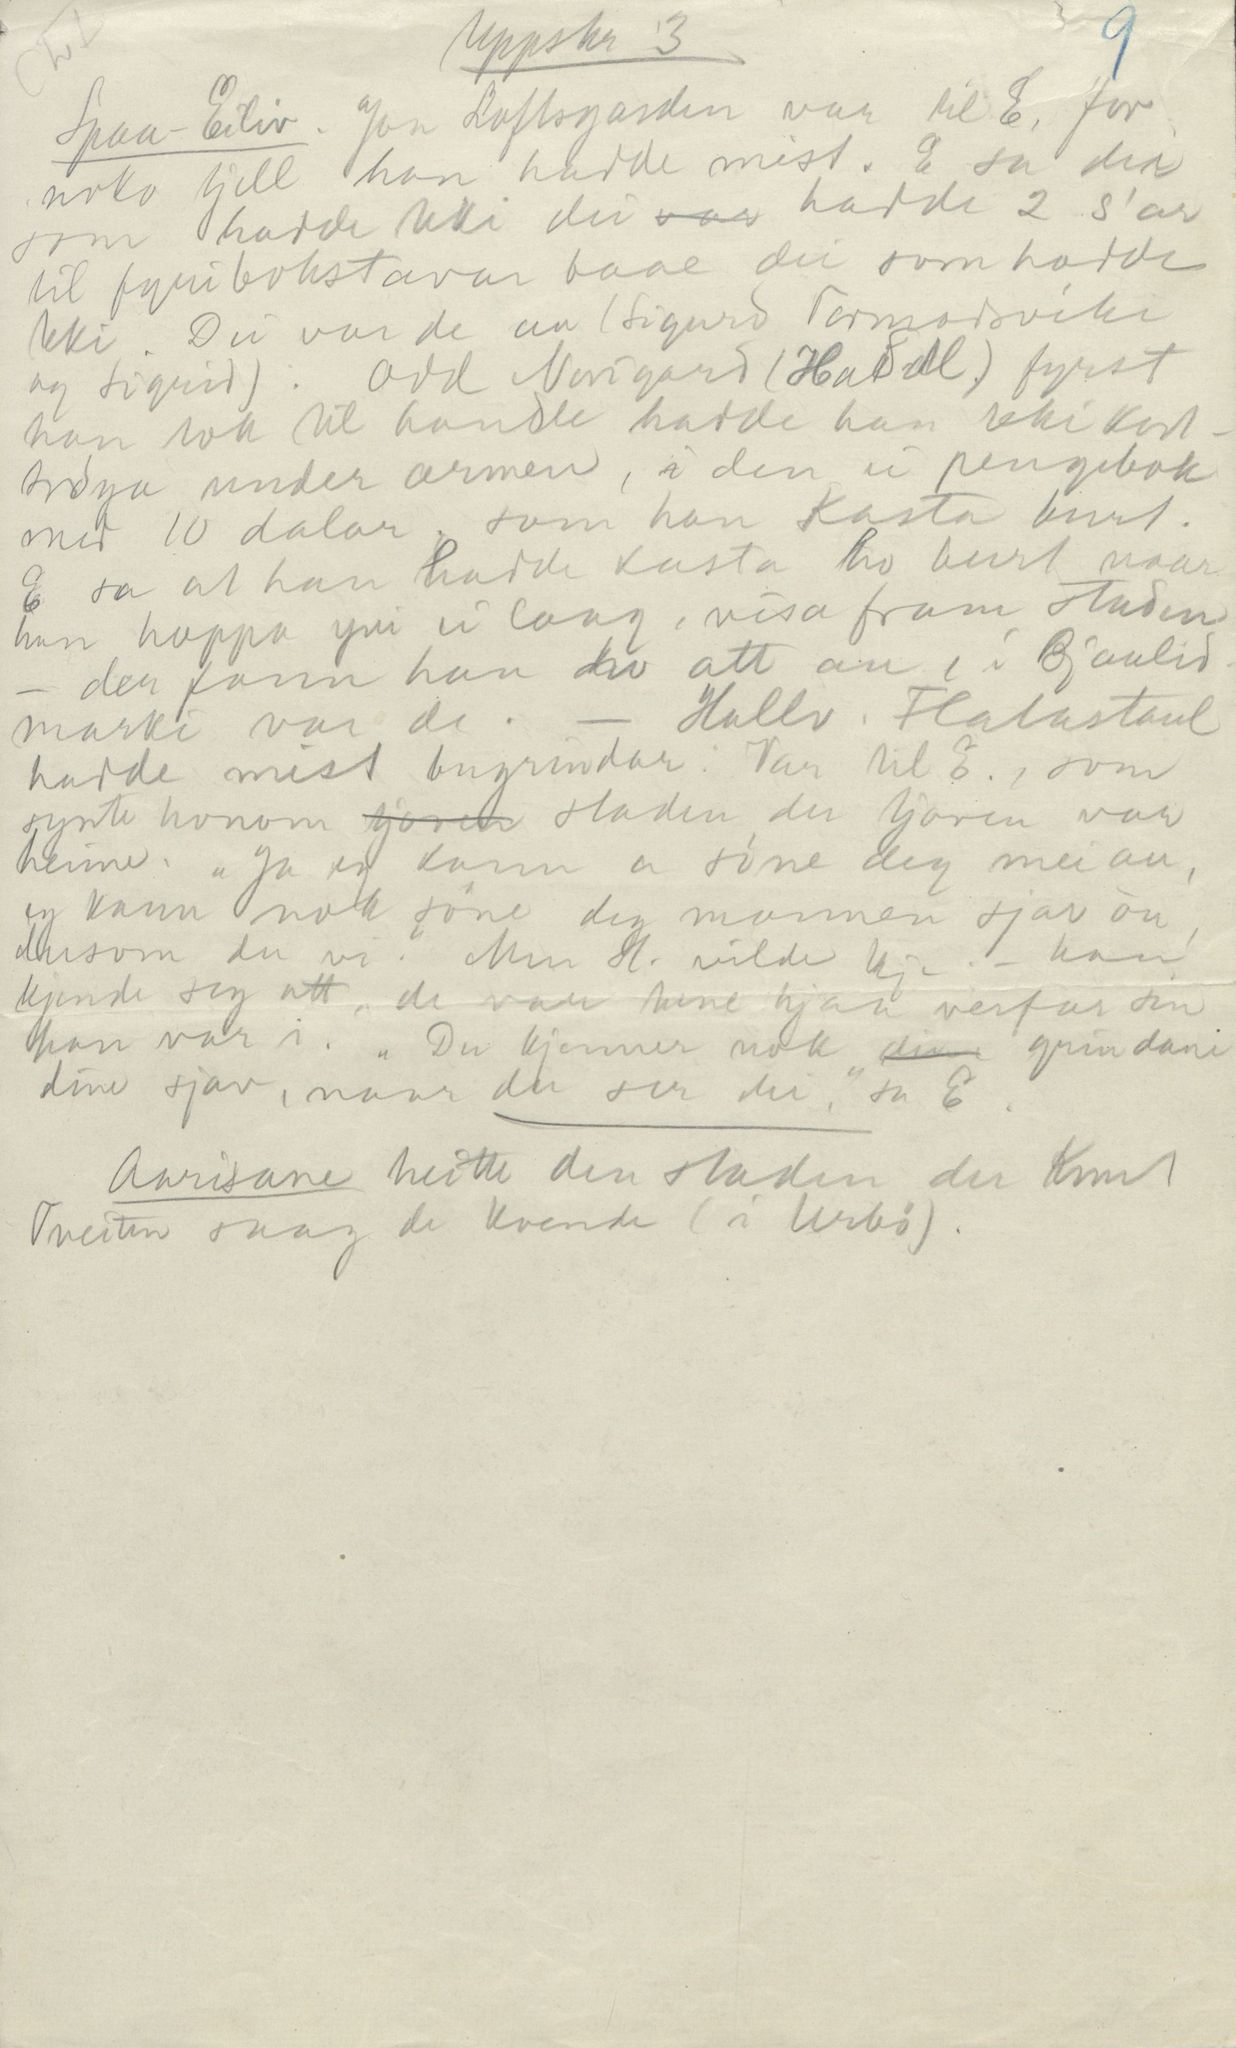 Uppskr 3
9
Spaa-Eiliv. Jon Loftsgarden var til E. for
noko tjell han hadde mist. E sa dei
som hadde teki dei var hadde 2 s'ar
til fyribokstavar baae dei som hadde
teki. Dei var de au (Sigurd Tormodsviki
og Sigrid). Odd Norigard (Haddl.) fyrst
han tok til handle hadde han teki kort-
trøya under armen, i den ei pengebok
med 10 dalar, som han kasta burt.
E sa at han hadde kasta ho burt naar
han hoppa yvi ei laag, visa fram staden
- der fann han ho att au, i Bjaalid-
marki var de. — Hallv. Flatastaul
hadde mist bugrindar. Var til E., som
synte honom tjoven staden der tjoven var
heime. "Ja eg kann a söne deg mei au,
eg kann nok söne deg mannen sjav òu,
dersom du vi." Men H. vilde kje. - han
kjende seg att, de var hine hjaa verfar sin
han var i. "Du kjenner nok dine grindane
dine sjav, naar du ser dei," sa E.
Aurisane heitte den staden der Knut
Tveiten saag de kvende (i Urbö).